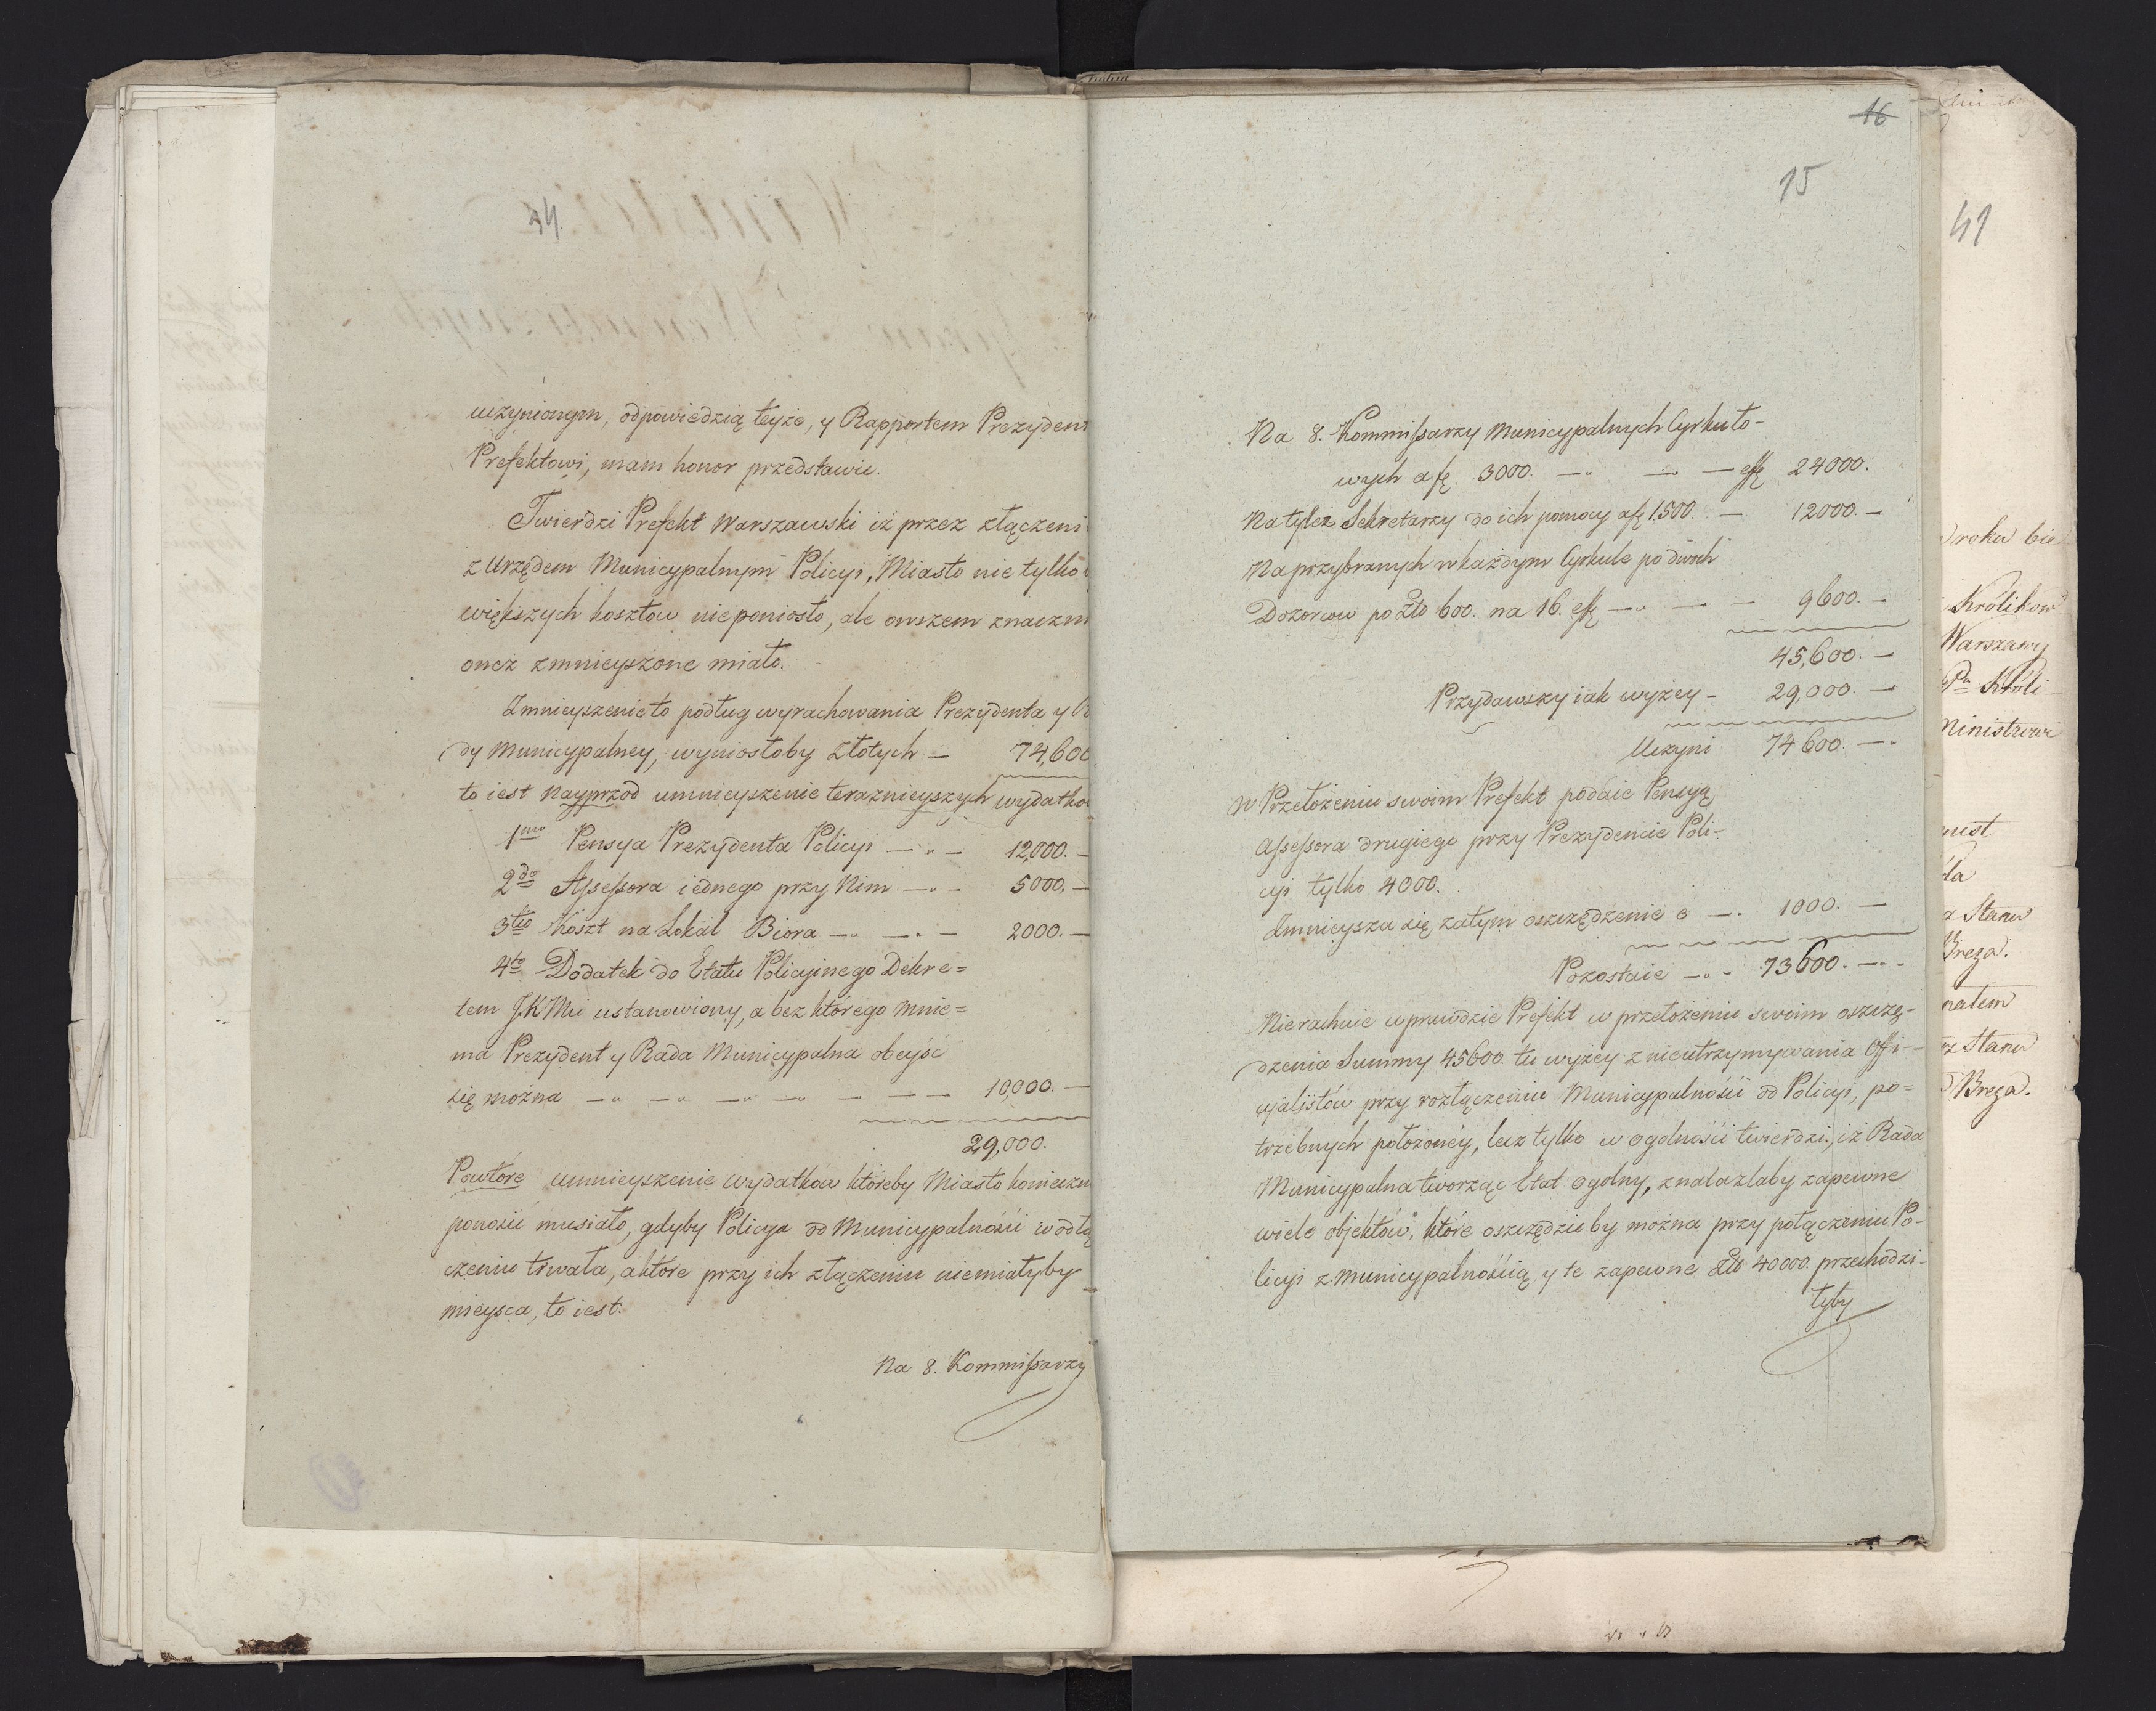 uczynionym, odpowiedzią teyże, y Rapportem Prezydent
Prefektowi, mam honor przedstawić.
Twierdzi Prefekt Warszawski iż przez złączeni
z Urzędem Municypalnym Policyi, Miasto nie tylko
większych kosztow nieponiosło, ale owszem znaczn
oneż zmnieyszone miało.
Zmnieyszenie to podług wyrachowania Prezydenta y
dy Municypalney, wyniosłoby Złotych — 74,600
to iest Nayprzód umnieyszenie teraznieyszych wydatko
1mo Pensya Prezydenta Policyi — " — 12,000. —
2do Assessora iednego przy Nim — " — 5000. —
3tio Koszt na Lokal Biora — " — " — 2000. —
4to Dodatek do Etatu Policyinego Dekre=
tem JKMci ustanowiony, a bez którego mnie=
ma Prezydent y Rada Municypalna obeyść
się można — " — " — " — " — — — 10,000. —
29,000.
Powtóre umnieyszenie wydatkow któreby Miasto konieczn
ponosić musiało, gdyby Policya od Municypalności w odłą
czeniu trwała, a które przy ich złączeniu niemiałyby
mieysca, to iest.
Na 8. Kommissarzy
16
15
Na 8. Kommissarzy Municypalnych Cyrkuło-
wych a fę. 3000. — " — " — 24000.
Na tyleż Sekretarzy do ich pomocy a fę 1.500. — 12000. —
Na przybranych w każdym Cyrkule po dwóch
Dozorcow po Zło 600. na 16. — " — — 9600. —
45,600. —
Przydawszy iak wyżey — 29,000. —
Uczyni 74600. — "
W Przełożeniu swoim Prefekt podaie Pensyą
Assessora drugiego przy Prezydencie Poli-
cyi tylko 4000.
Zmnieysza się zatym oszczędzenie o — . 1000. —
Pozostaie — " — 73600. — " —
Nierachuie wprawdzie Prefekt w przełożeniu swoim oszczę-
dzenia Summy 45600. tu wyżey z nieutrzymywania Offi-
cyalistów przy rozłączeniu Municypalności od Policyi, po=
trzebnych położoney, lecz tylko w ogolności twierdzi, iż Rada
Municypalna tworząc Etat ogolny, znalazłaby zapewne
wiele objektów, które oszczędzić by można przy połączeniu Po-
licyi z Municypalnością y te zapewne Zło 40000. przechodzi-
łyby
41
roku bie
Królikow
Warszawy
Pa Króli-
Ministrowi
Stanu
Breza.
Stanu
Breza.